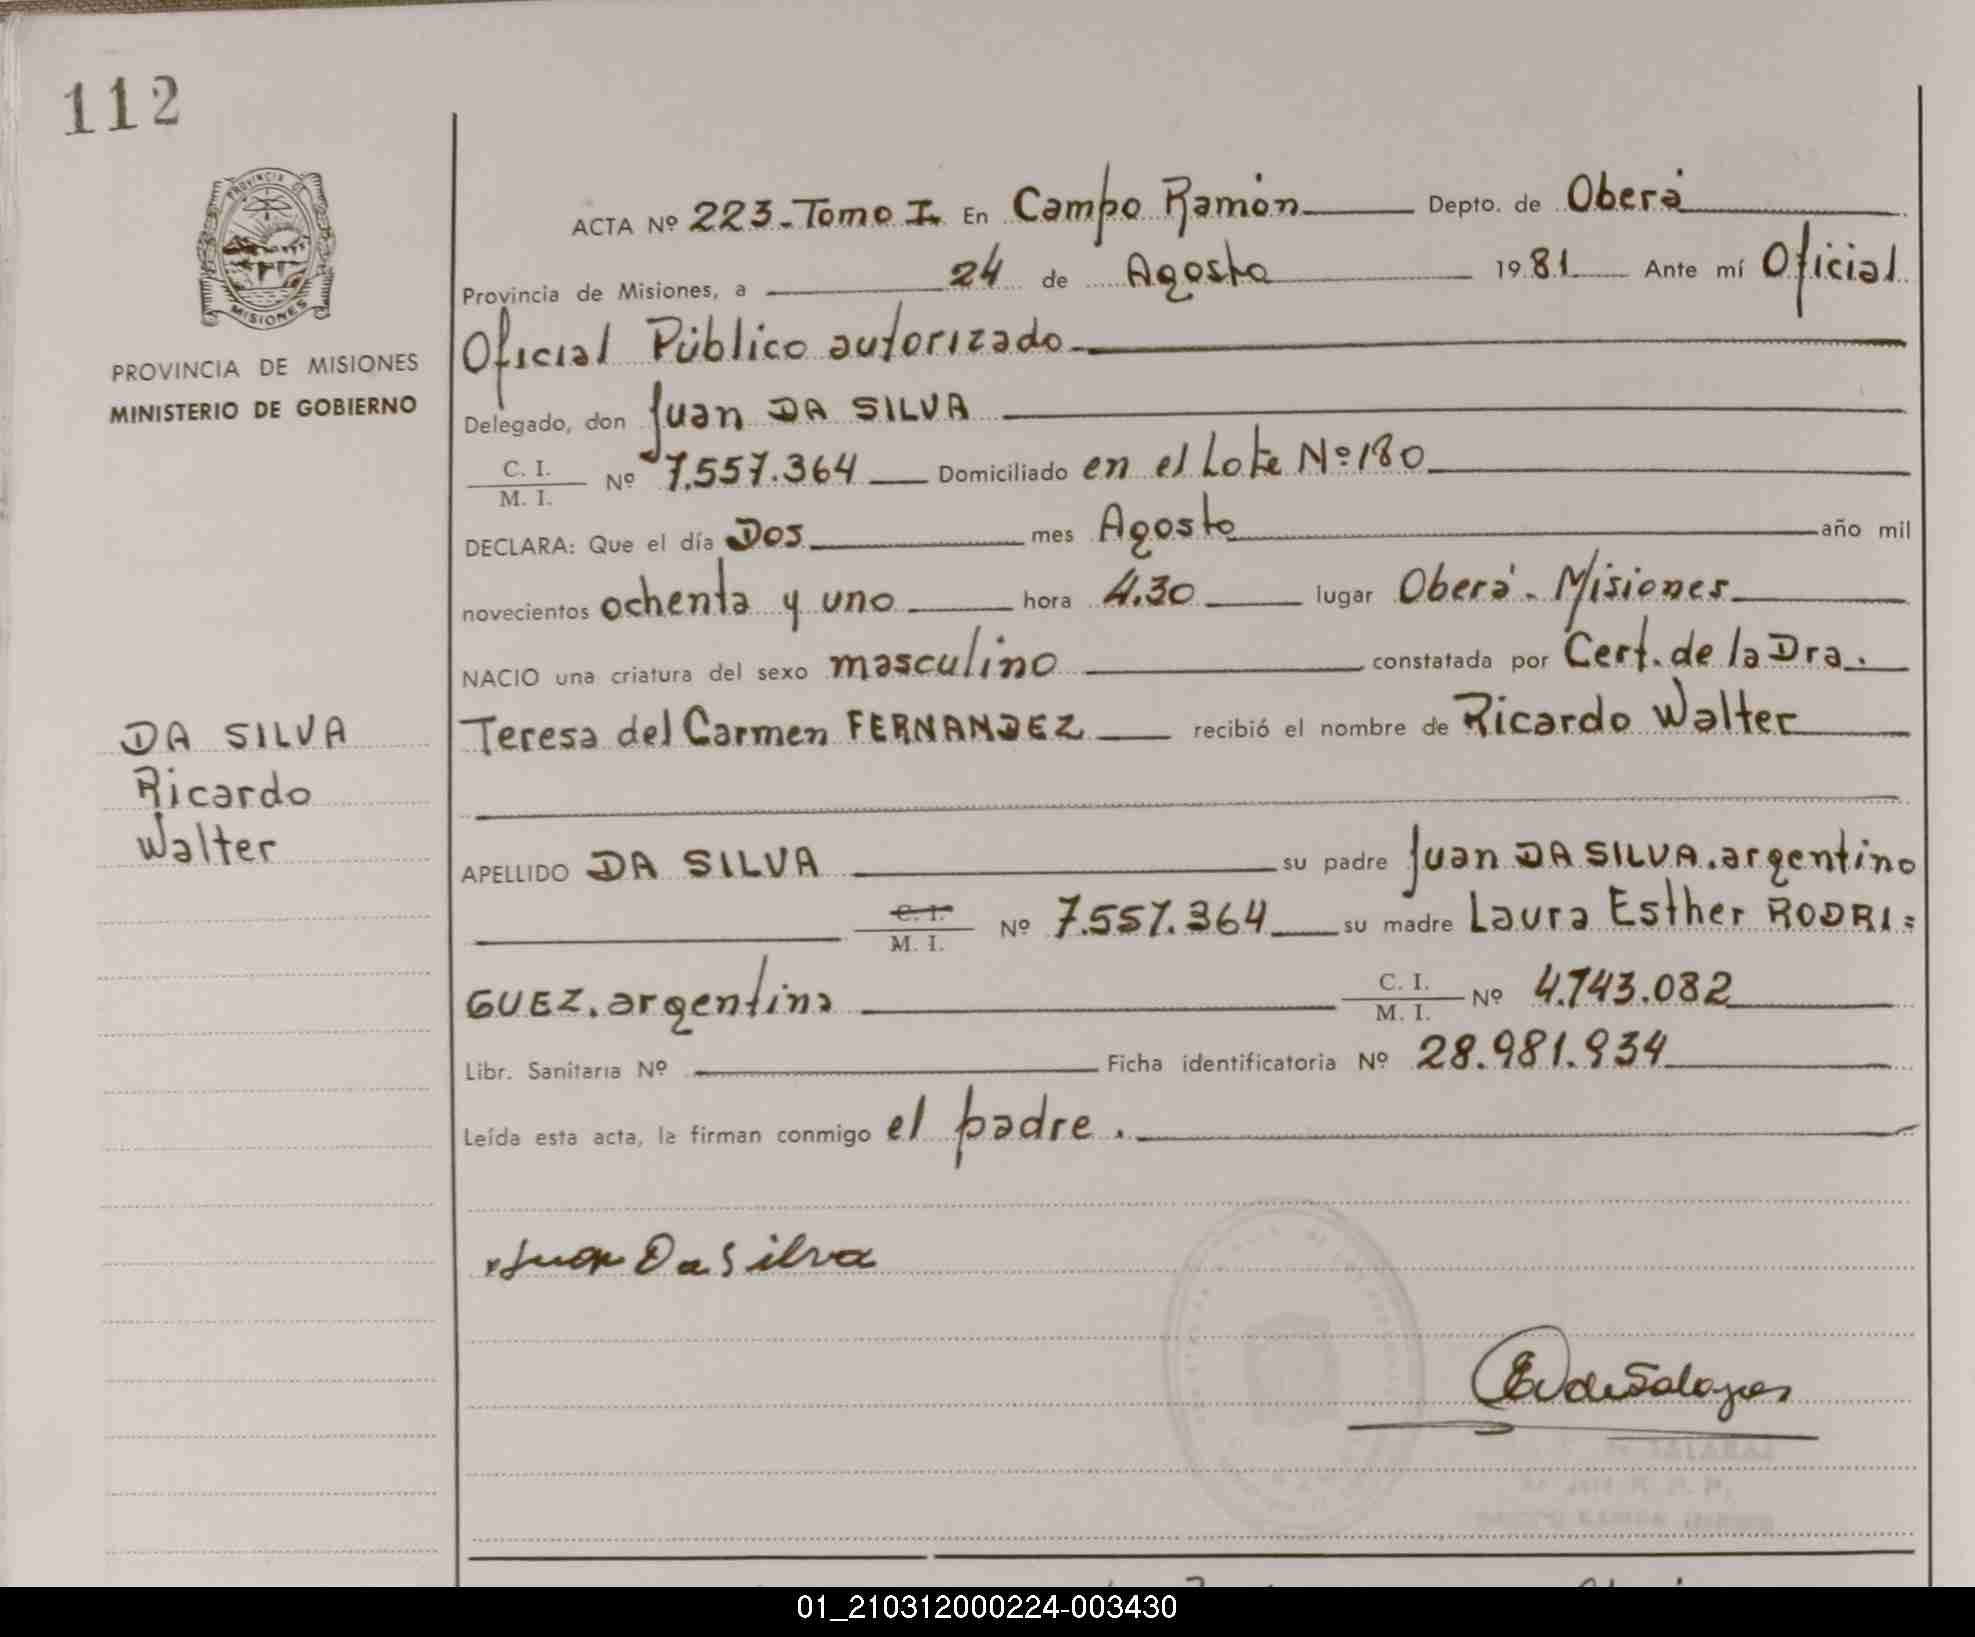 112
PROVINCIA DE
MISIONES
PROVINCIA DE MISIONES
MINISTERIO DE GOBIERNO
ACTA Nº 223 - Tomo I. En Campo Ramón Depto. de Oberá
Provincia de Misiones, a 24 de Agosto 1981 Ante mí Oficial
Oficial Público autorizado
Delegado, don Juan DA SILVA
C. I.
M. I. Nº 7.557.364 Domiciliado en el Lote Nº 180
DECLARA: Que el día Dos mes Agosto año mil
novecientos ochenta y uno hora 4.30 lugar Oberá - Misiones
NACIO una criatura del sexo masculino constatada por Cert. de la Dra.
Teresa del Carmen FERNANDEZ recibió el nombre de Ricardo Walter
DA SILVA
Ricardo
Walter
APELLIDO DA SILVA su padre Juan DA SILVA. argentino
C. I.
M. I. Nº 7.557.364 su madre Laura Esther RODRI=
GUEZ. argentina C. I.
M. I. Nº 4.743.082
Libr. Sanitaria Nº Ficha identificatoria Nº 28.981.934
Leída esta acta, la firman conmigo el padre.
Juan Da Silva
de Salazar
01_210312000224-003430